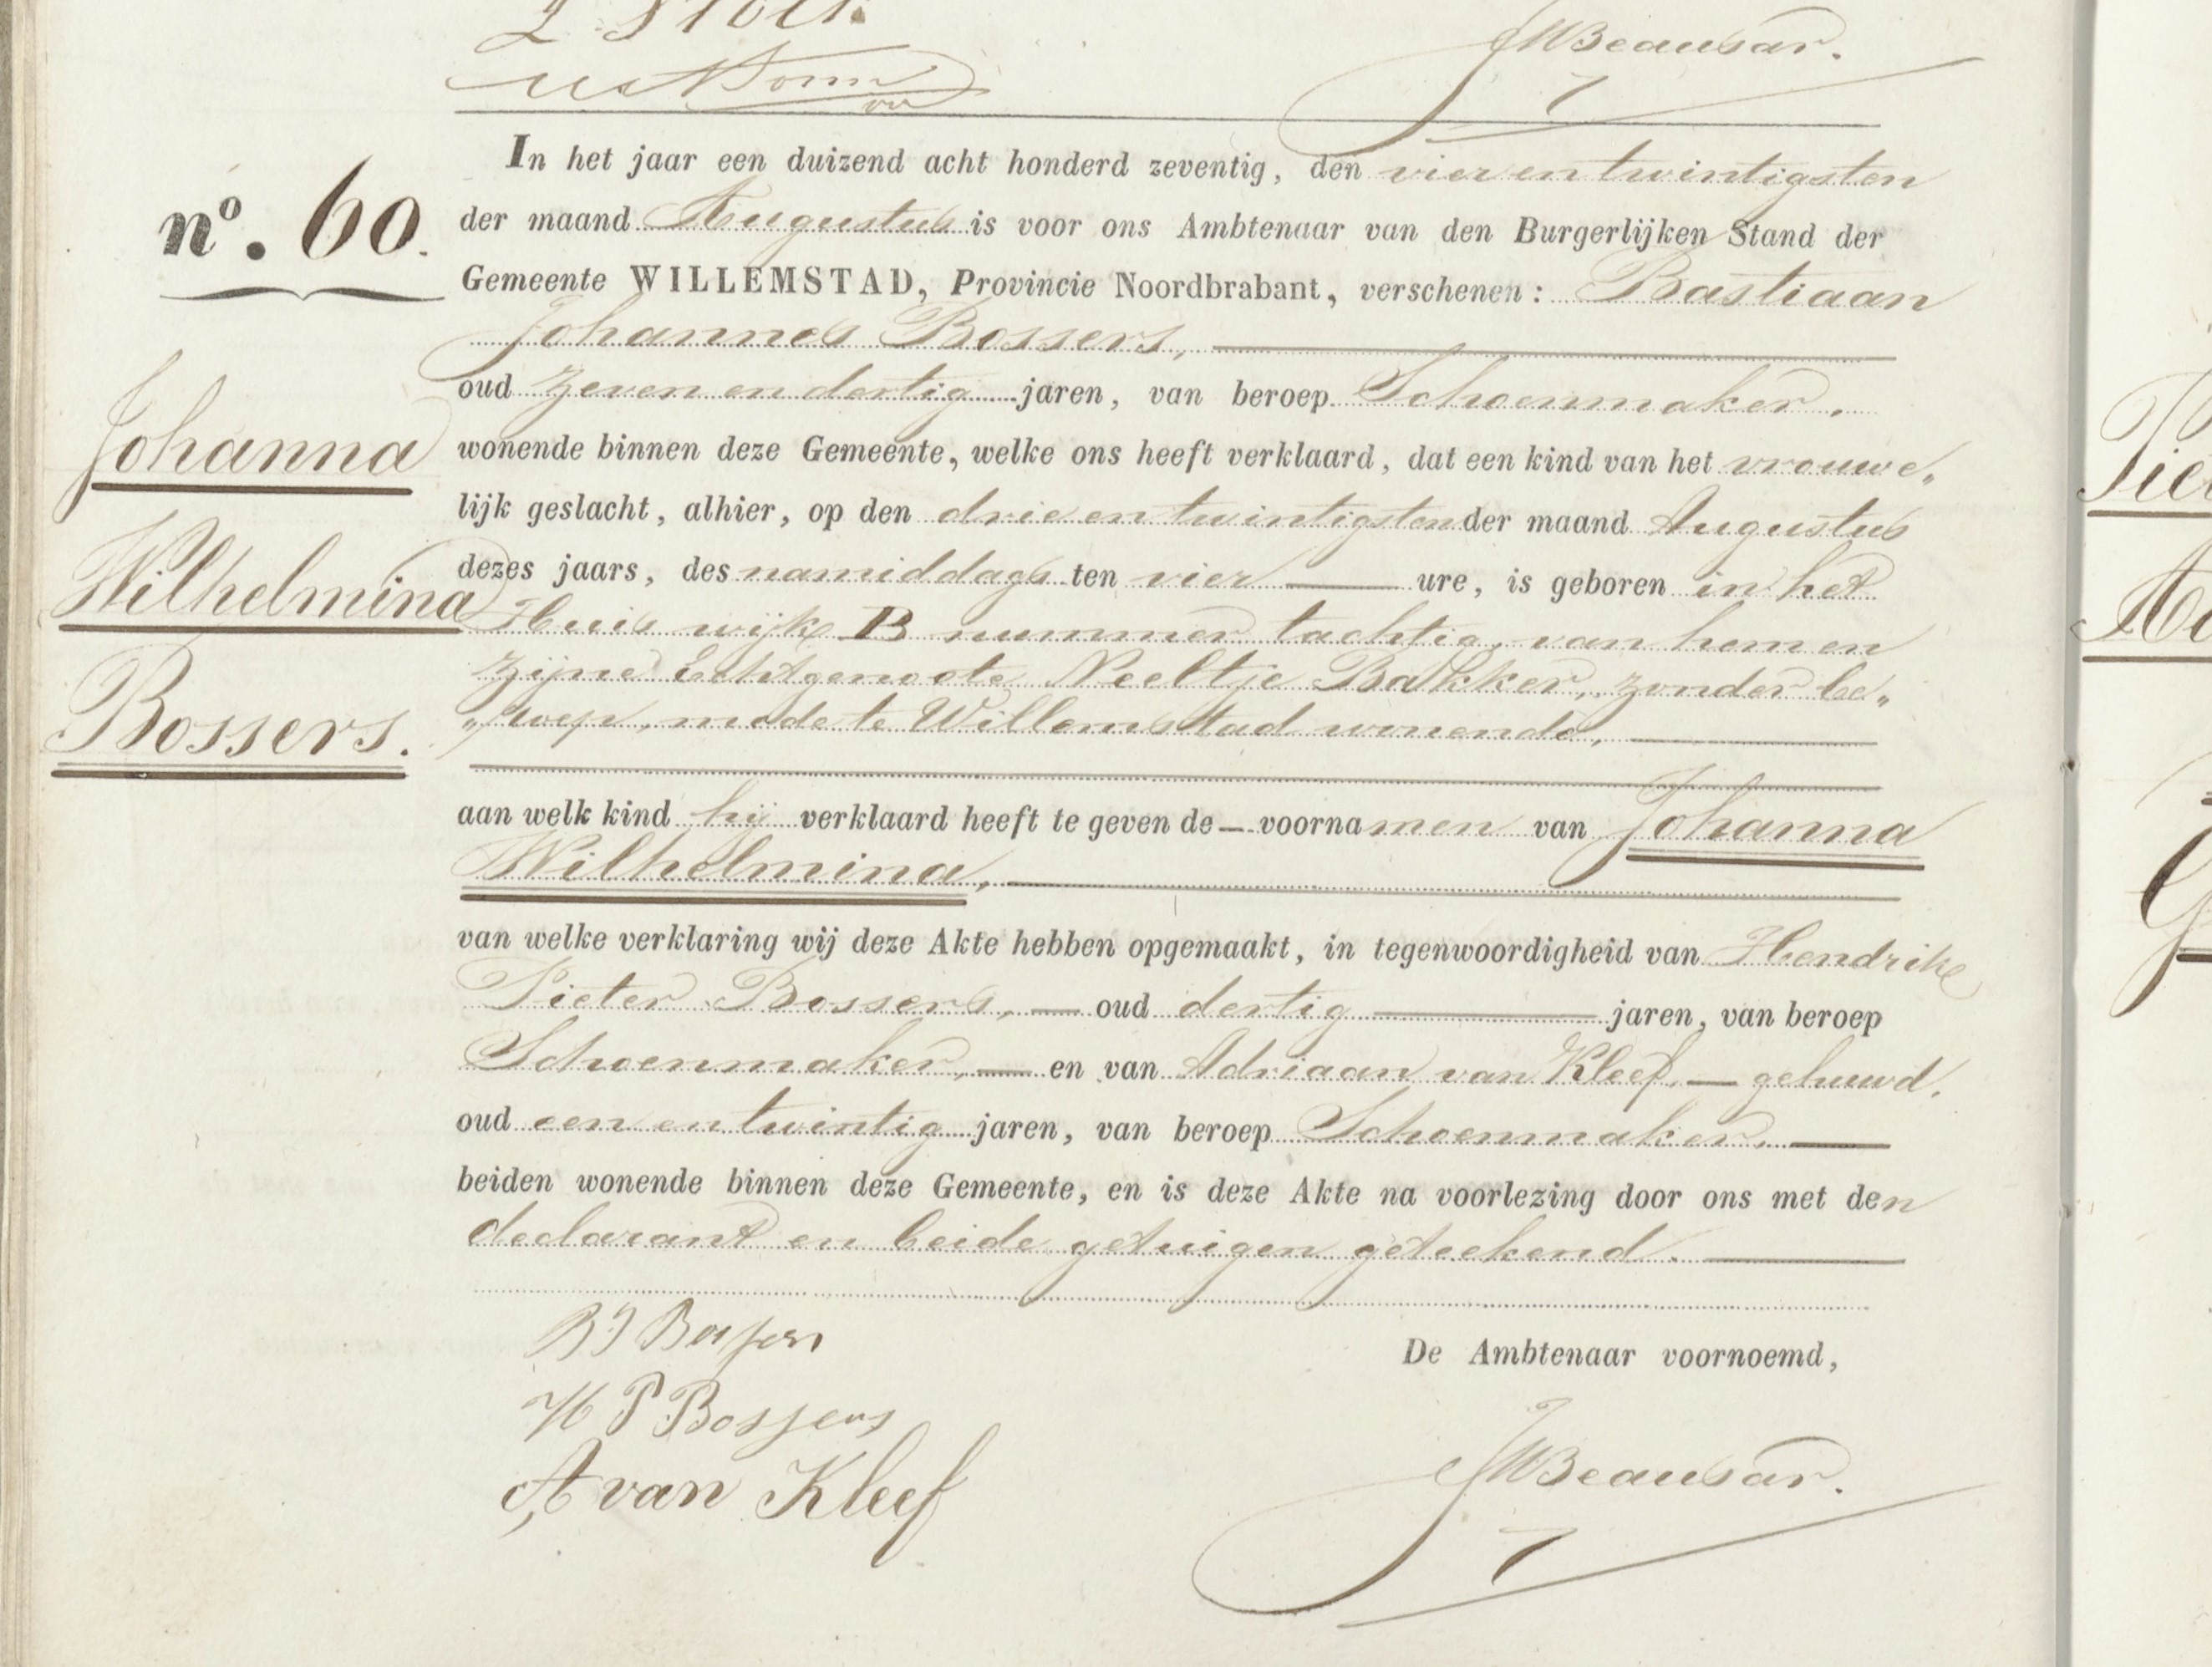 JWBeausar.
In het jaar een duizend acht honderd zeventig, den vier en twintigsten
der maand Augustus is voor ons Ambtenaar van den Burgerlijken Stand der
nº. 60.
Gemeente WILLEMSTAD, Provincie Noordbrabant, verschenen: Bastiaan
Johannes Bossers,
oud zeven en dertig jaren, van beroep Schoenmaker,
Johanna
wonende binnen deze Gemeente, welke ons heeft verklaard, dat een kind van het vrouwe„
lijk geslacht, alhier, op den drie en twintigsten der maand Augustus
dezes jaars, des namiddags ten vier ure, is geboren in het
Wilhelmina
Huis wijk B nummer tachtig, van hem en
zijne Echtgenoote Neeltje Bakker, zonder be„
„roep, mede te Willemstad wonende,
Bossers.
aan welk kind hij verklaard heeft te geven de voornamen van Johanna
Wilhelmina,
van welke verklaring wij deze Akte hebben opgemaakt, in tegenwoordigheid van Hendrik
Pieter Bossers, oud dertig jaren, van beroep
Schoenmaker, en van Adriaan van Kleef, gehuwd.
oud een en twintig jaren, van beroep Schoenmaker,
beiden wonende binnen deze Gemeente, en is deze Akte na voorlezing door ons met den
declarant en beide getuigen geteekend.
BJ Bossers
De Ambtenaar voornoemd,
H P Bossers
A van Kleef
JWBeausar.